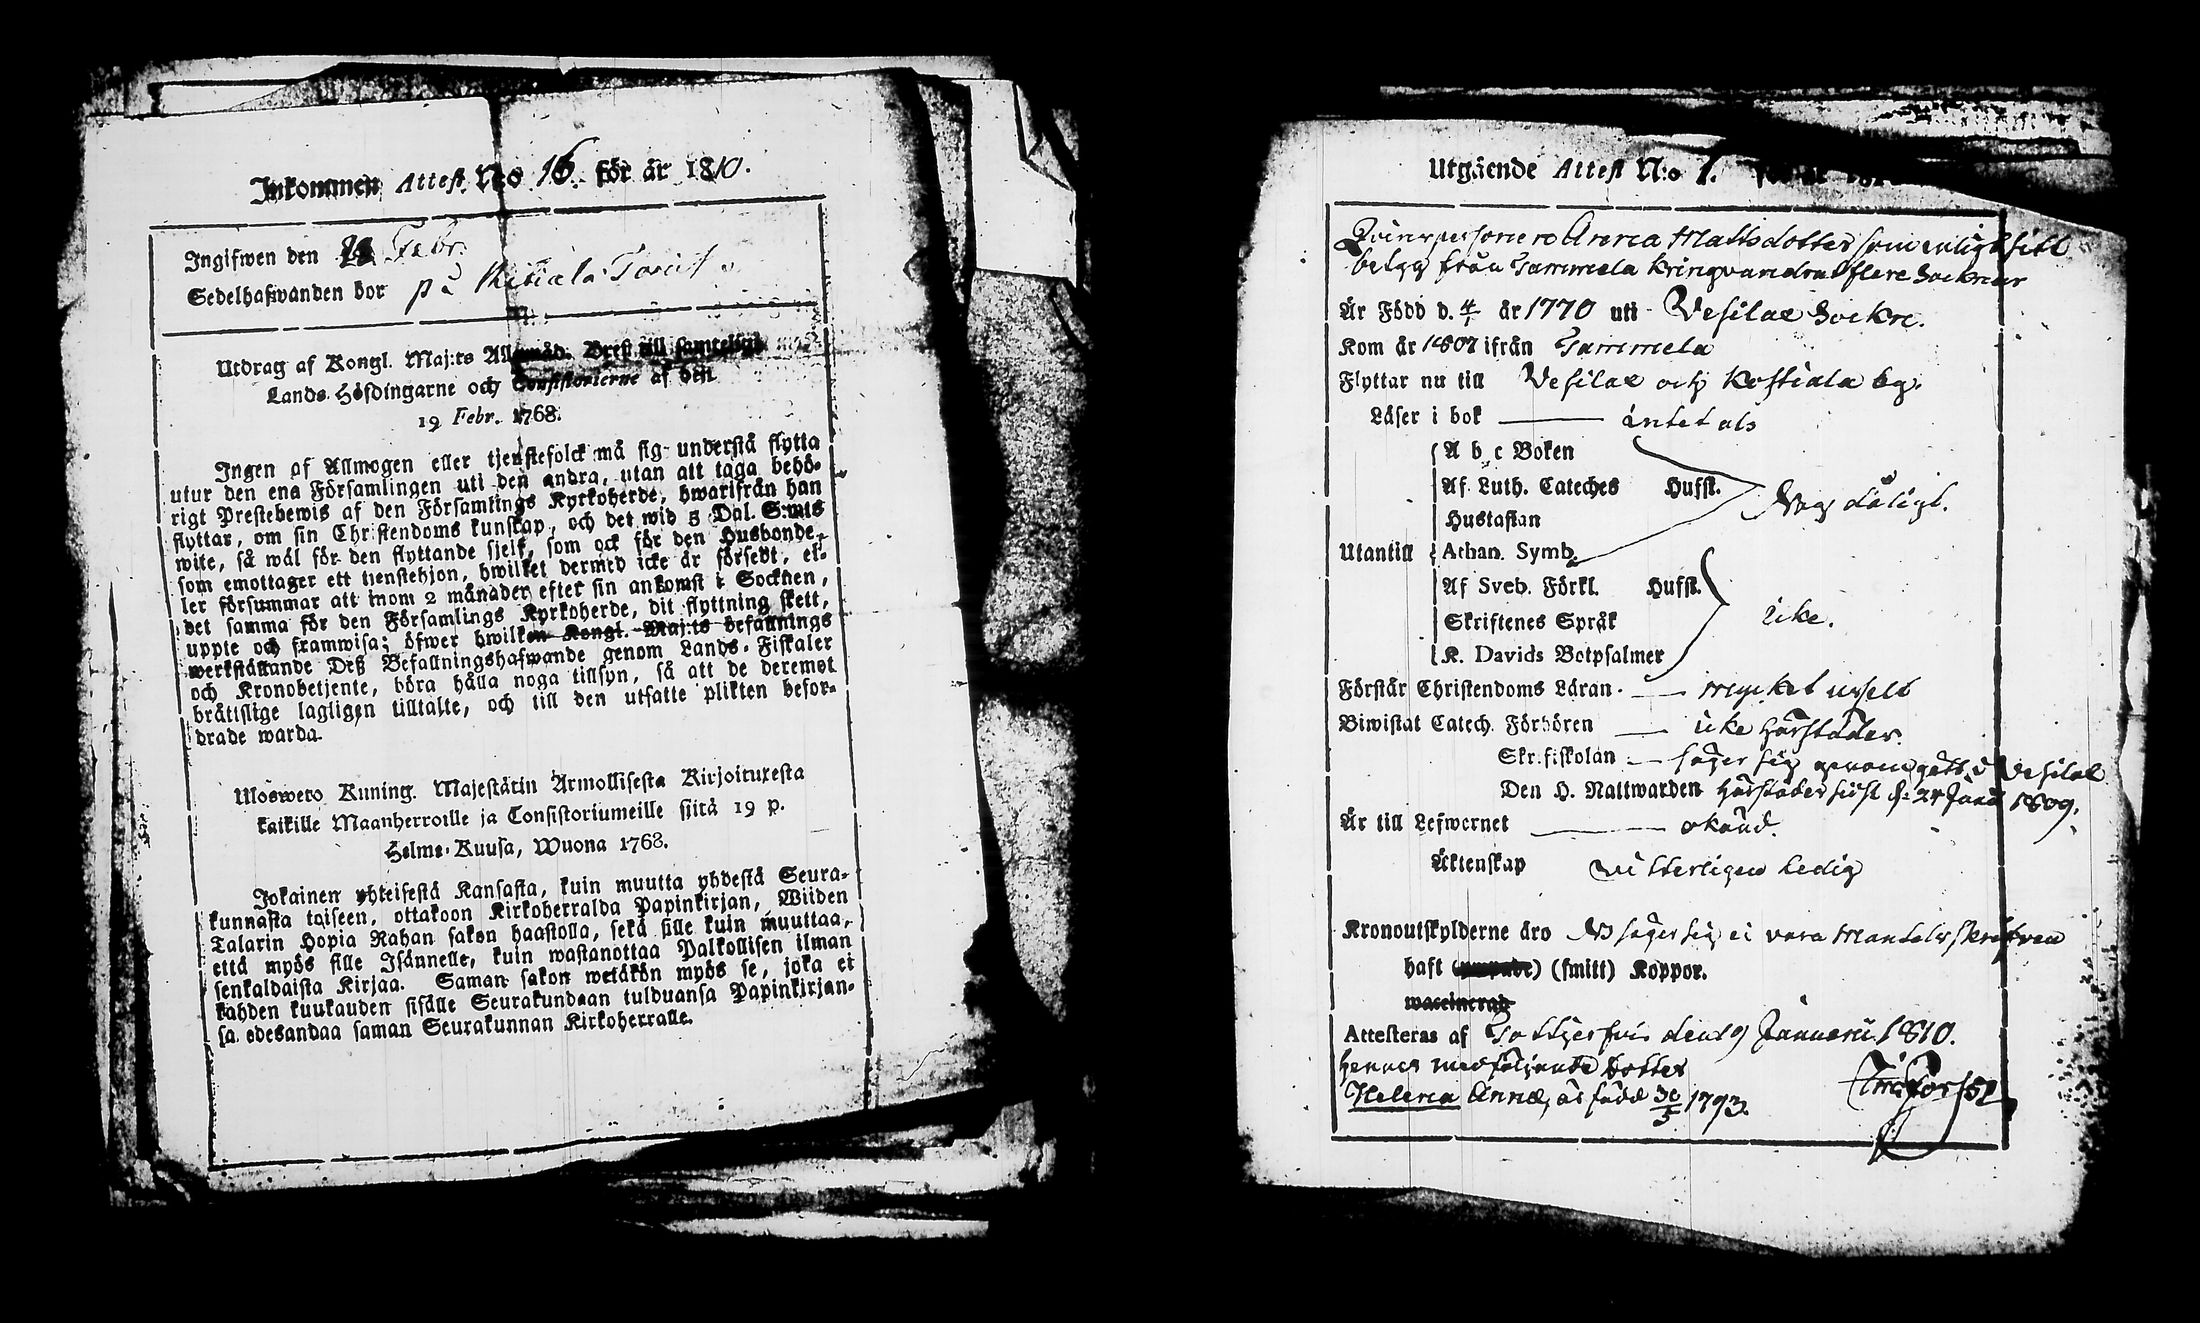 Inkommen Attest No 16. för år 1810.
Ingifwen den 24 Febr.
Sedelhafwanden bor på
Utdrag af Kongl. Maj:ts Allernåd. Bref till samtelige
Lands-Höfdingarne och Consistorierne af den
19 Febr. 1768.
Ingen af Allmogen eller tjenstefolck må sig understå flytta
utur den ena Församlingen uti den andra, utan att taga behö-
rigt Prestebewis af den Församlings Kyrkoherde, hwarifrån han
flyttar, om sin Christendoms kunskap, och det wid 5 Dal. S:mts
wite, så wäl för den flyttande sjelf, som ock för den Husbonde,
som emottager ett tjenstehjon, hwilket dermed icke är försedt, el-
ler försummar att inom 2 månader efter sin ankomst i Socknen,
det samma för den Församlings Kyrkoherde, dit flyttning skett,
uppte och framwisa; öfwer hwilken Kongl. Maj:ts befallnings
werkställande Deß Befallningshafwande genom Lands-Fiskaler
och Kronobetjente, böra hålla noga tillsyn, så att de deremot
bråttslige lagligen tilltalte, och till den utsatte plikten befor-
drade warda.
Uloswero Kuning. Majestätin Armollisesta Kirjoituxesta
kaikille Maanherroille ja Consistoriumeille siitä 19 p.
Helme-Kuusa, Wuona 1768.
Jokainen yhteisestä Kansasta, kuin muutta yhdestä Seura-
kunnasta toiseen, ottakoon Kirkoherralda Papinkirjan, Wiiden
Talarin Hopia Rahan sakon haastolla, sekä sille kuin muuttaa,
että myös sille Isännelle, kuin wastanottaa Palkollisen ilman
senkaldaista Kirjaa. Saman sakon wetäkön myös se, joka ei
kahden kuukauden sisälle Seurakundaan tulduansa Papinkirjan-
sa edesandaa saman Seurakunnan Kirkoherralle.
Utgående Attest N:o 1. för år
Qvinspersonen Anna Mattsdotter som enligt sitt
betyg från Tammela kringvandrat flere Socknar
Är Född d. 4/1 år 1770 uti Vesilax Sockn.
Kom år 1807 ifrån Tammela
Flyttar nu till Vesilax och Kostiala by.
Läser i bok intet als
A b c Boken
Af Luth. Cateches Hufst.
Hustaflan
Någ dåligt.
Utantill Athan. Symb.
Af Sveb. Förkl. Hufst.
Skriftenes Språk
icke.
K. Davids Botpsalmer
Förstår Christendoms Läran mycket uselt
Biwistat Catech. Förhören icke härstädes.
Skriftskolan säger sig genomgått i Vesilax
Den H. Nattwarden härstädes sidst d. 24 Junii 1809.
Är till Lefwernet okänd.
Äktenskap vitterligen ledig
Kronoutskylderne äro säger sig ei vara Mantalsskrefven
haft (smitt) Koppor.
waccinerad
Attesteras af den 9 Januarii 1810.
Hennes medföljande dotter
Helena Annæ, är född 30/5 1793.